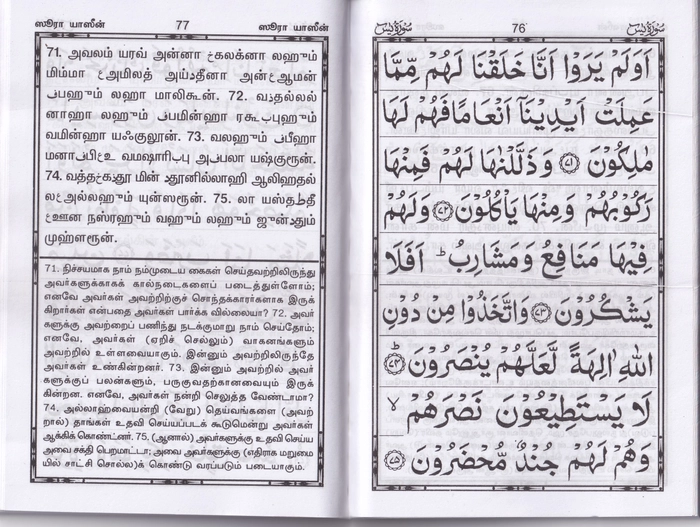 ஸூரா யாஸீன் 77 ஸூரா யாஸீன்
71. அவலம் யரவ் அன்னா கலக்னா லஹும்
மிம்மா அமிலத் அய்தீனா அன்ஆமன்
ஃபஹும் லஹா மாலிகூன். 72. வதல்லல்
னாஹா லஹும் ஃபமின்ஹா ரகூபுஹும்
வமின்ஹா யஃகுலூன். 73. வலஹும் ஃபீஹா
மனாஃபிஉ வமஷாரிபு அஃபலா யஷ்குரூன்.
74. வத்தகதூ மின் தூனில்லாஹி ஆலிஹதல்
லஅல்லஹும் யுன்ஸரூன். 75. லா யஸ்ததீ
ஊன நஸ்ரஹும் வஹும் லஹும் ஜுன்தும்
முஹ்ளரூன்.
71. நிச்சயமாக நாம் நம்முடைய கைகள் செய்தவற்றிலிருந்து
அவர்களுக்காகக் கால்நடைகளைப் படைத்துள்ளோம்;
எனவே அவர்கள் அவற்றிற்குச் சொந்தக்காரர்களாக இருக்
கிறார்கள் என்பதை அவர்கள் பார்க்க வில்லையா? 72. அவர்
களுக்கு அவற்றைப் பணிந்து நடக்குமாறு நாம் செய்தோம்;
எனவே, அவர்கள் (ஏறிச் செல்லும்) வாகனங்களும்
அவற்றில் உள்ளவையாகும். இன்னும் அவற்றிலிருந்தே
அவர்கள் உண்கின்றனர். 73. இன்னும் அவற்றில் அவர்
களுக்குப் பலன்களும், பருகுவதற்கானவையும் இருக்
கின்றன. எனவே, அவர்கள் நன்றி செலுத்த வேண்டாமா?
74. அல்லாஹ்வையன்றி (வேறு) தெய்வங்களை (அவற்
றால்) தாங்கள் உதவி செய்யப்படக் கூடுமென்று அவர்கள்
ஆக்கிக் கொண்டனர். 75. (ஆனால்) அவர்களுக்கு உதவி செய்ய
அவை சக்தி பெறமாட்டா; அவை அவர்களுக்கு (எதிராக மறுமை
யில் சாட்சி சொல்ல)க் கொண்டு வரப்படும் படையாகும்.
سُوْرَةُ يٰسٓ 76 سُوْرَةُ يٰسٓ
اَوَلَمْ يَرَوْا اَنَّا خَلَقْنَا لَهُمْ مِّمَّا
عَمِلَتْ اَيْدِيْنَآ اَنْعَامًا فَهُمْ لَهَا
مٰلِكُوْنَ ﴿۷۱﴾ وَذَلَّلْنٰهَا لَهُمْ فَمِنْهَا
رَكُوْبُهُمْ وَمِنْهَا يَاْكُلُوْنَ ﴿۷۲﴾ وَلَهُمْ
فِيْهَا مَنَافِعُ وَمَشَارِبُ ؕ اَفَلَا
يَشْكُرُوْنَ ﴿۷۳﴾ وَاتَّخَذُوْا مِنْ دُوْنِ
اللّٰهِ اٰلِهَةً لَّعَلَّهُمْ يُنْصَرُوْنَ ﴿۷۴﴾ؕ
لَا يَسْتَطِيْعُوْنَ نَصْرَهُمْ ۙ
وَهُمْ لَهُمْ جُنْدٌ مُّحْضَرُوْنَ ﴿۷۵﴾